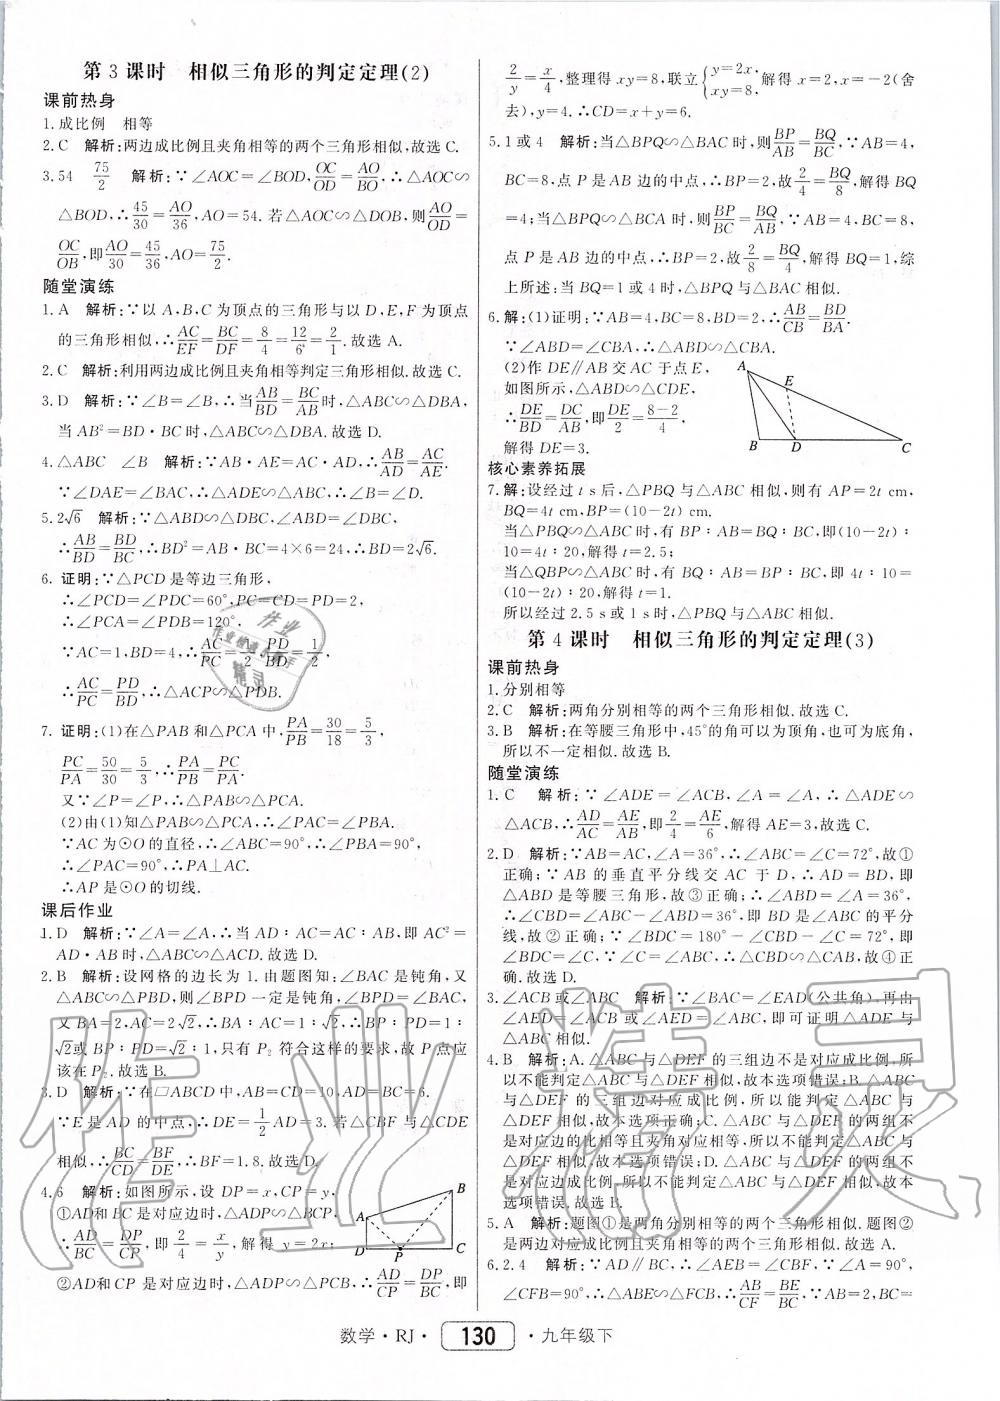 第3课时　相似三角形的判定定理(2)
课前热身
1.成比例　相等
2.C　解析:两边成比例且夹角相等的两个三角形相似,故选C.
3.54　75/2　解析:∵∠AOC=∠BOD,OC/OD=AO/BO,∴△AOC∽
△BOD,∴45/30=AO/36,AO=54.若△AOC∽△DOB,则AO/OD=
OC/OB,即AO/30=45/36,AO=75/2.
随堂演练
1.A　解析:∵以A,B,C为顶点的三角形与以D,E,F为顶点
的三角形相似,∴AC/EF=BC/DF=8/4=12/6=2/1.故选A.
2.C　解析:利用两边成比例且夹角相等判定三角形相似.故选C.
3.D　解析:∵∠B=∠B,∴当AB/BD=BC/AB时,△ABC∽△DBA,
当AB²=BD·BC时,△ABC∽△DBA.故选D.
4.△ABC　∠B　解析:∵AB·AE=AC·AD,∴AB/AD=AC/AE.
∵∠DAE=∠BAC,∴△ADE∽△ABC,∴∠ADE=∠B.
5.2√6　解析:∵△ABD∽△DBC,∠ABD=∠DBC,
∴AB/BD=BD/BC,∴BD²=AB·BC=4×6=24,∴BD=2√6.
6.证明:∵△PCD是等边三角形,
∴∠PCD=∠PDC=60°,PC=CD=PD=2,
∴∠PCA=∠PDB=120°.
∵AC=1,BD=4,∴AC/PC=1/2,PD/BD=1/2,
∴AC/PC=PD/BD,∴△ACP∽△PDB.
7.证明:(1)在△PAB和△PCA中,PA/PB=30/18=5/3,
PC/PA=50/30=5/3,∴PA/PB=PC/PA.
又∵∠P=∠P,∴△PAB∽△PCA.
(2)由(1)知△PAB∽△PCA,∴∠PAC=∠PBA.
∵AC为⊙O的直径,∴∠ABC=90°,∴∠PBA=90°,
∴∠PAC=90°,∴PA⊥AC.
∴AP是⊙O的切线.
课后作业
1.D　解析:∵∠A=∠A,∴当AD∶AC=AC∶AB,即AC²=
AD·AB时,△ABC∽△ACD.故选D.
2.B　解析:设网格的边长为1.由题图知:∠BAC是钝角,又
△ABC∽△PBD,则∠BPD一定是钝角,∠BPD=∠BAC,
又BA=2,AC=2√2,∴BA∶AC=1∶√2,∴BP∶PD=1∶
√2或BP∶PD=√2∶1,只有P₂符合这样的要求,故P点应
该在P₂.故选B.
3.D　解析:∵在▱ABCD中,AB=CD=10,AD=BC=6.
∵E是AD的中点,∴DE=1/2AD=3.若△CBF与△CDE
相似,∴BC/CD=BF/DE,∴BF=1.8.故选D.
4.6　解析:如图所示,设DP=x,CP=y,
①AD和BC是对应边时,△ADP∽△BCP,
∴AD/BC=DP/CP,即2/4=x/y,解得y=2x;
②AD和CP是对应边时,△ADP∽△PCB,∴AD/CP=DP/BC,即
A B D P C
2/y=x/4,整理得xy=8,联立{y=2x, xy=8,解得x=2,x=-2(舍
去),y=4.∴CD=x+y=6.
5.1或4　解析:当△BPQ∽△BAC时,则BP/AB=BQ/BC.∵AB=4,
BC=8,点P是AB边的中点,∴BP=2,故2/4=BQ/8,解得BQ
=4;当△BPQ∽△BCA时,则BP/BC=BQ/AB,∵AB=4,BC=8,
点P是AB边的中点,∴BP=2,故2/8=BQ/4,解得BQ=1,综
上所述:当BQ=1或4时,△BPQ与△BAC相似.
6.解:(1)证明:∵AB=4,BC=8,BD=2,∴AB/CB=BD/BA.
∵∠ABD=∠CBA,∴△ABD∽△CBA.
(2)作DE∥AB交AC于点E,
如图所示,△ABD∽△CDE,
∴DE/BD=DC/AB,即DE/2=8-2/4,
解得DE=3.
A E B D C
核心素养拓展
7.解:设经过t s后,△PBQ与△ABC相似,则有AP=2t cm,
BQ=4t cm,BP=(10-2t)cm.
当△PBQ∽△ABC时,有BP∶AB=BQ∶BC,即(10-2t)∶
10=4t∶20,解得t=2.5;
当△QBP∽△ABC时,有BQ∶AB=BP∶BC,即4t∶10=
(10-2t)∶20,解得t=1.
所以经过2.5 s或1 s时,△PBQ与△ABC相似.
第4课时　相似三角形的判定定理(3)
课前热身
1.分别相等
2.C　解析:两角分别相等的两个三角形相似.故选C.
3.B　解析:在等腰三角形中,45°的角可以为顶角,也可为底角,
所以不一定相似.故选B.
随堂演练
1.C　解析:∵∠ADE=∠ACB,∠A=∠A,∴△ADE∽
△ACB,∴AD/AC=AE/AB,即2/4=AE/6,解得AE=3,故选C.
2.D　解析:∵AB=AC,∠A=36°,∴∠ABC=∠C=72°,故①
正确;∵AB的垂直平分线交AC于D,∴AD=BD,即
△ABD是等腰三角形,故③正确;∴∠ABD=∠A=36°,
∴∠CBD=∠ABC-∠ABD=36°,即BD是∠ABC的平分
线,故②正确;∵∠BDC=180°-∠CBD-∠C=72°,即
∠BDC=∠C=∠ABC,∴△CBD∽△CAB,故④正
确.故选D.
3.∠ACB或∠ABC　解析:∵∠BAC=∠EAD(公共角),再由
∠AED=∠ACB或∠AED=∠ABC,即可证明△ADE与
△ABC相似.
4.B　解析:A.△ABC与△DEF的三组边不是对应成比例,所
以不能判定△ABC与△DEF相似,故本选项错误;B.△ABC与
△DEF的三组边对应成比例,所以能判定△ABC与
△DEF相似,故本选项正确;C.△ABC与△DEF的两组不
是对应边的比相等且夹角对应相等,所以不能判定△ABC与
△DEF相似,故本选项错误;D.△ABC与△DEF的两组不
是对应边的比相等,所以不能判定△ABC与△DEF相似,故本
选项错误.故选B.
5.A　解析:题图①是两角分别相等的两个三角形相似.题图②
是两边对应成比例且夹角相等的两个三角形相似.故选A.
6.2.4　解析:∵AD∥BC,∴∠AEB=∠FBC.∵∠A=90°,
∠CFB=90°,∴△ABE∽△FCB,∴AB/CF=BE/BC.∵AB=3,BC=
数学·RJ·　130　·九年级下
作业精灵